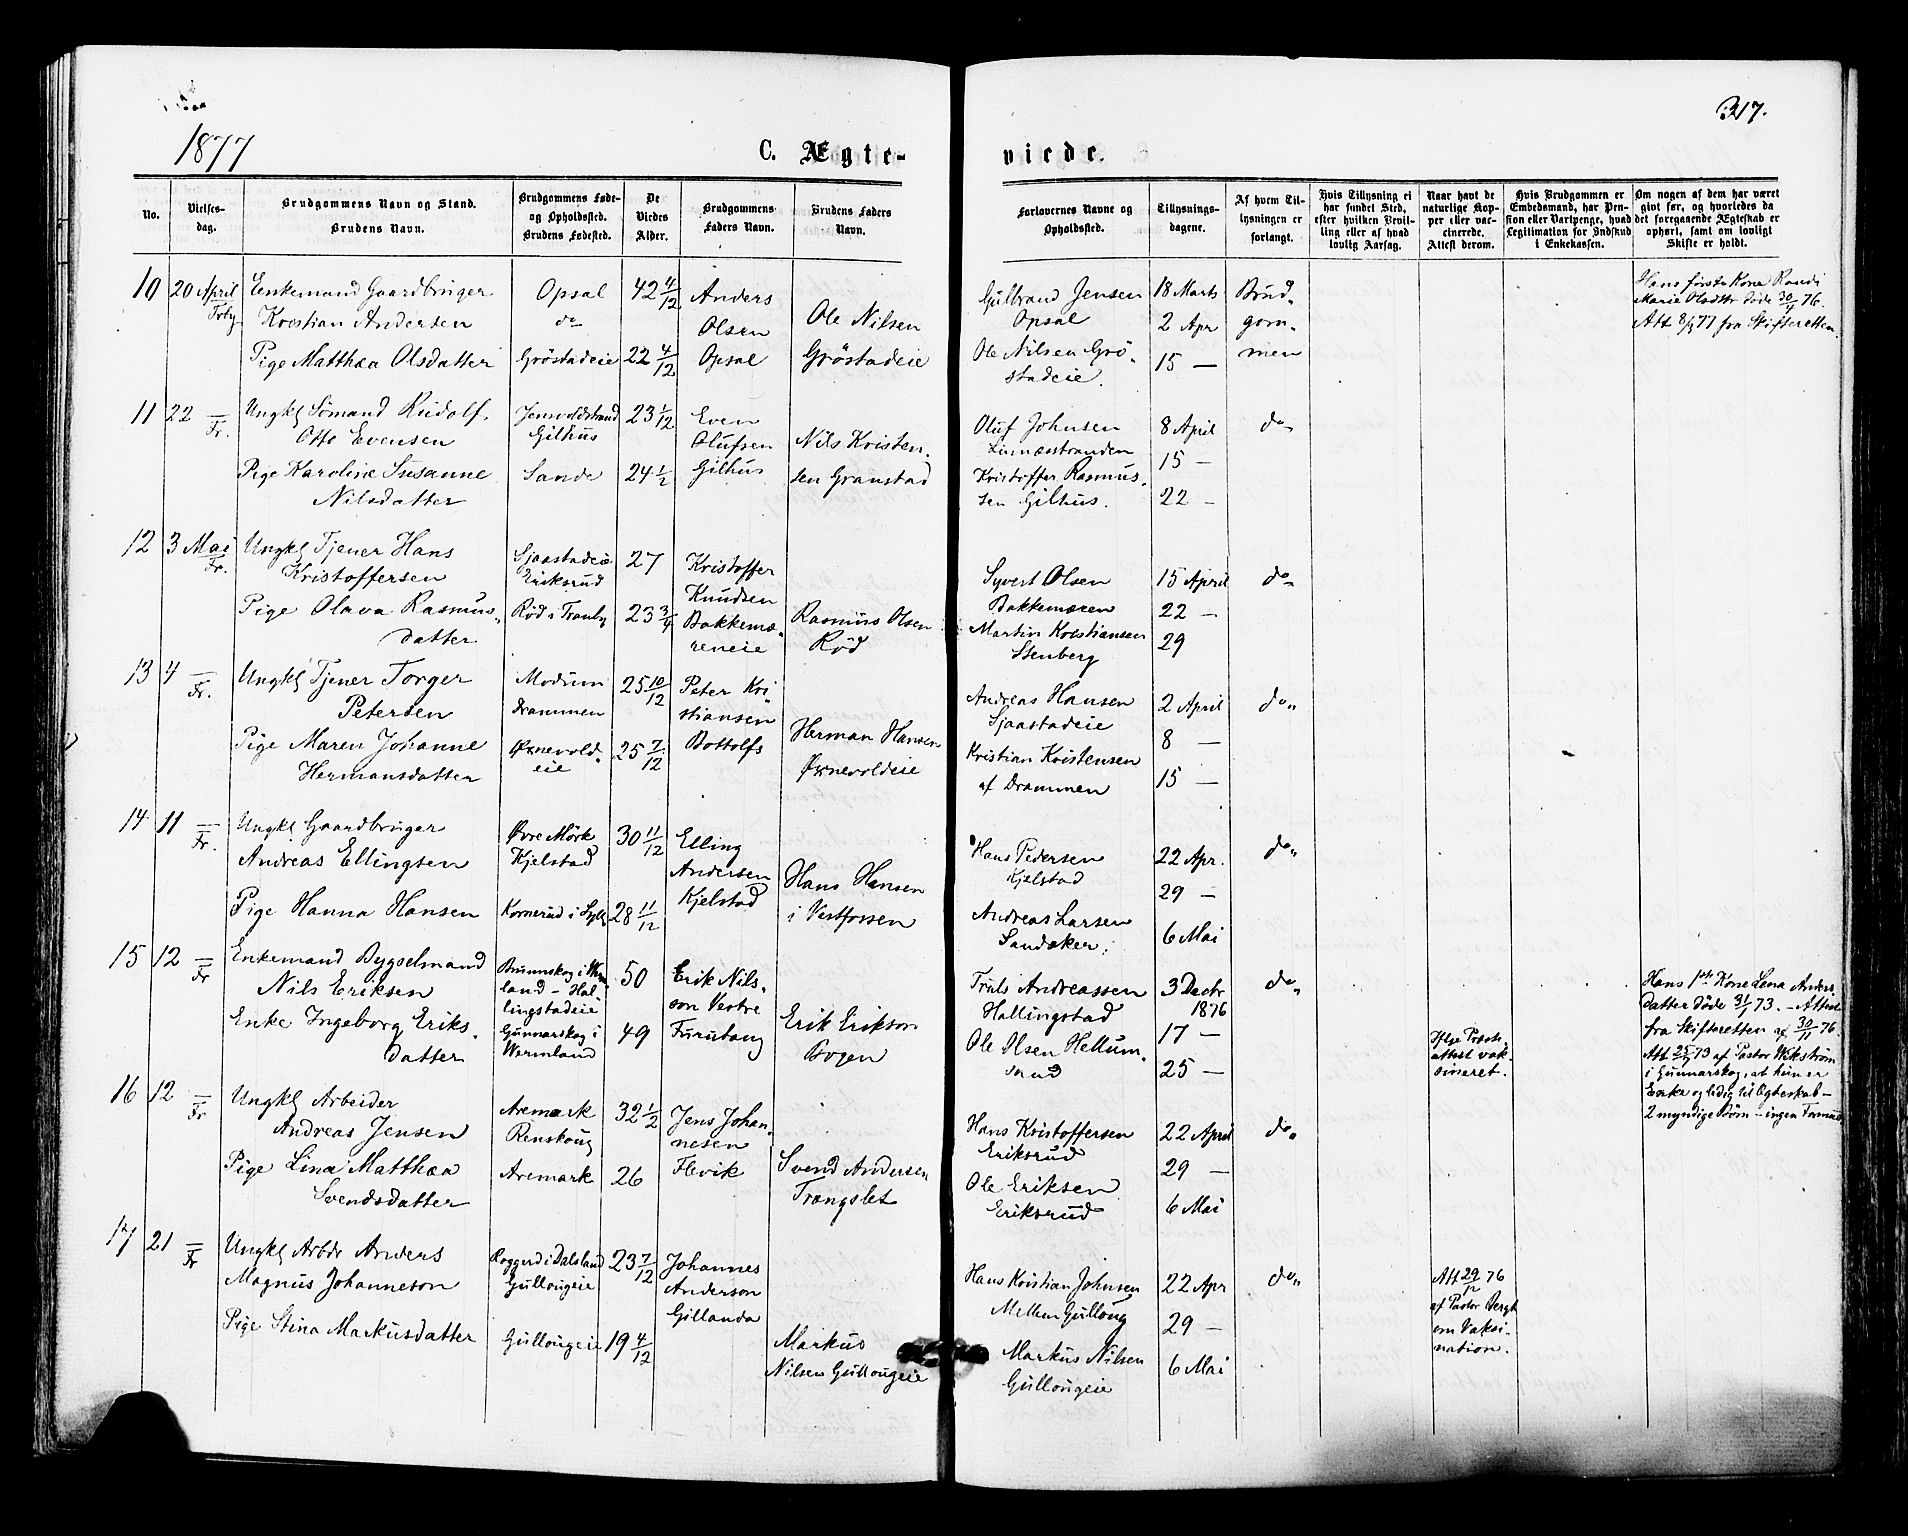 1877
C. Ægte-
viede.
317.
No.
Vielses-
dag.
Brudgommens Navn og Stand.
Brudens Navn.
Brudgommens Føde-
og Opholdsted.
Brudens Fødested.
De
Viedes
Alder.
Brudgommens
Faders Navn.
Brudens Faders
Navn.
Forlovernes Navne og
Opholdsted.
Tillysnings-
dagene.
Af hvem Til-
lysningen er
forlangt.
Hvis Tillysning ei
har fundet Sted,
efter hvilken Bevil-
ling eller af hvad
lovlig Aarsag.
Naar havt de
naturlige Kop-
per eller vac-
cinerede.
Attest derom.
Hvis Brudgommen er
Embedsmand, har Pen-
sion eller Vartpenge, hvad
Legitimation for Indskud
i Enkekassen.
Om nogen af dem har været
gift før, og hvorledes da
det foregaaende Ægteskab er
ophørt, samt om lovligt
Skifte er holdt.
10
20 April
Enkemand Gaardbruger
Kristian Andersen
Pige Matthæa Olsdatter
Opsal
do
Gröstadeie
42 4/12
22 4/12
Anders
Olsen
Opsal
Ole Nilsen
Gröstadeie
Gulbrand Jensen
Opsal
Ole Nilsen Grö-
stadeie.
18 Marts
2 Apr
15 —
Brud-
gom-
men
Hans första Kone Randi
Marie Olsdttr döde 30/4 76.
Att 8/1 77 fra Skifteretten
11
22 —
Fr.
Ungkl Sömand Rudolf
Otto Evensen
Pige Karoline Susanne
Nilsdatter
Gilhus
Sande
23 1/12
24 1/2
Even
Olufsen
Gilhus
Nils Kristen-
sen Granstad
Oluf Johnsen
Linnæsstranden
Kristoffer Rasmus-
sen Gilhus.
8 April
15 —
22 —
do
12
3 Mai
Fr.
Ungkl Tjener Hans
Kristoffersen
Pige Olava Rasmus-
datter
Sjaastadeie
Eriksrud
Röd i Tranby
27
23 3/4
Kristoffer
Knudsen
Bakkemæ-
reneie
Rasmus Olsen
Röd
Syvert Olsen
Bakkemæren
Martin Kristiansen
Stenberg
15 April
22 —
29
do
13
4 —
Fr.
Ungkl Tjener Torger
Petersen
Pige Maren Johanne
Hermansdatter
Modum
Drammen
Øxnevold-
eie
25 10/12
25 7/12
Peter Kri
stiansen
Bottolfs
Herman Hansen
Øxnevoldeie
Andreas Hansen
Sjaastadeie
Kristian Kristensen
af Drammen
2 April
8 —
15 —
do
14
11 —
Fr.
Ungkl Gaardbruger
Andreas Ellingsen
Pige Hanna Hansen
Øvre Mörk
Kjelstad
Kornerud i Lylly
30 11/12
28 11/12
Elling
Andersen
Kjelstad
Hans Hansen
i Vestfossen
Hans Pedersen
Kjelstad
Andreas Larsen
Sandaker.
22 Apr.
29 —
6 Mai
do
15
12 —
Fr
Enkemand Bygselmand
Nils Eriksen
Enke Ingeborg Eriks-
datter
Brunnskog i Werm
land - Hal-
lingstadeie
Gunnarskog i
Wermland
50
49
Erik Nils-
son Vestre
Furutang
Erik Erikson
Bogen
Truls Andreassen
Hallingstad
Ole Olsen Hellum-
sand
3 Decbr
1876
17 —
25 —
do
Iflge Præste-
attest vak-
sineret.
Hans 1ste Kone Lena Anders
Datter döde 3/1 73. - Attest
fra Skifteretten af 30/11 76.
Att 25/ 73 af Pastor Wikström
i Gunnarskog, at hun er
Enke og ledig til Egteskab -
2 myndige Börn - ingen Formue
16
12 —
Fr
Ungkl Arbeider
Andreas Jensen
Pige Lina Matthæa
Svendsdatter
Aremark
Renskoug
Aremark
32 1/2
26
Jens Johan-
nesen
Flevik
Svend Andersen
Trangslet
Hans Kristoffersen
Eriksrud
Ole Eriksen
Eriksrud
22 April
29 —
6 Mai
do
17
21 —
Fr
Ungkl Arbdr Anders
Magnus Johanneson
Pige Stina Markusdatter
Roggerd i Dalsland
Gullougeie
Gullougeie
23 7/12
19 4/12
Johannes
Anderson
Gillanda
Markus
Nilsen Gullougeie
Hans Kristian Johnsen
Mellem Gulloug
Markus Nilsen
Gullougeie
22 Apr
29 —
6 Mai
do
Att 29/12 76
af Pastor Bergh
om Vaksi-
nation.